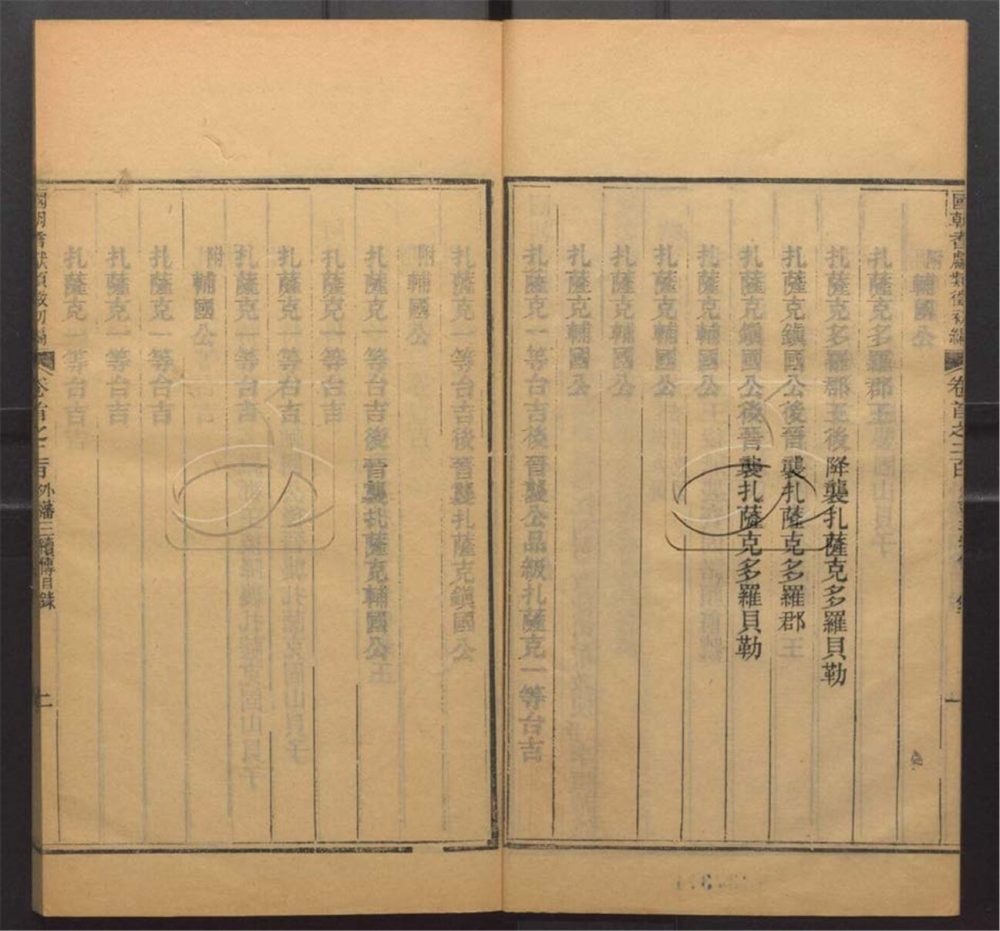 附輔國公
扎薩克多羅郡王
扎薩克多羅郡王後降襲扎薩克多羅貝勒
扎薩克鎭國公後晉襲扎薩克多羅郡王
扎薩克鎭國公後晉襲扎薩克多羅貝勒
扎薩克輔國公
扎薩克輔國公
扎薩克輔國公
扎薩克輔國公
扎薩克一等台吉後晉襲公品級扎薩克一等台吉
扎薩克一等台吉後晉襲扎薩克鎭國公
附輔國公
扎薩克一等台吉後晉襲扎薩克輔國公
扎薩克一等台吉
扎薩克一等台吉
扎薩克一等台吉
附輔國公
扎薩克一等台吉
扎薩克一等台吉
扎薩克一等台吉
國朝耆獻類徵初編
卷首之二百
外藩三續傳目錄
二